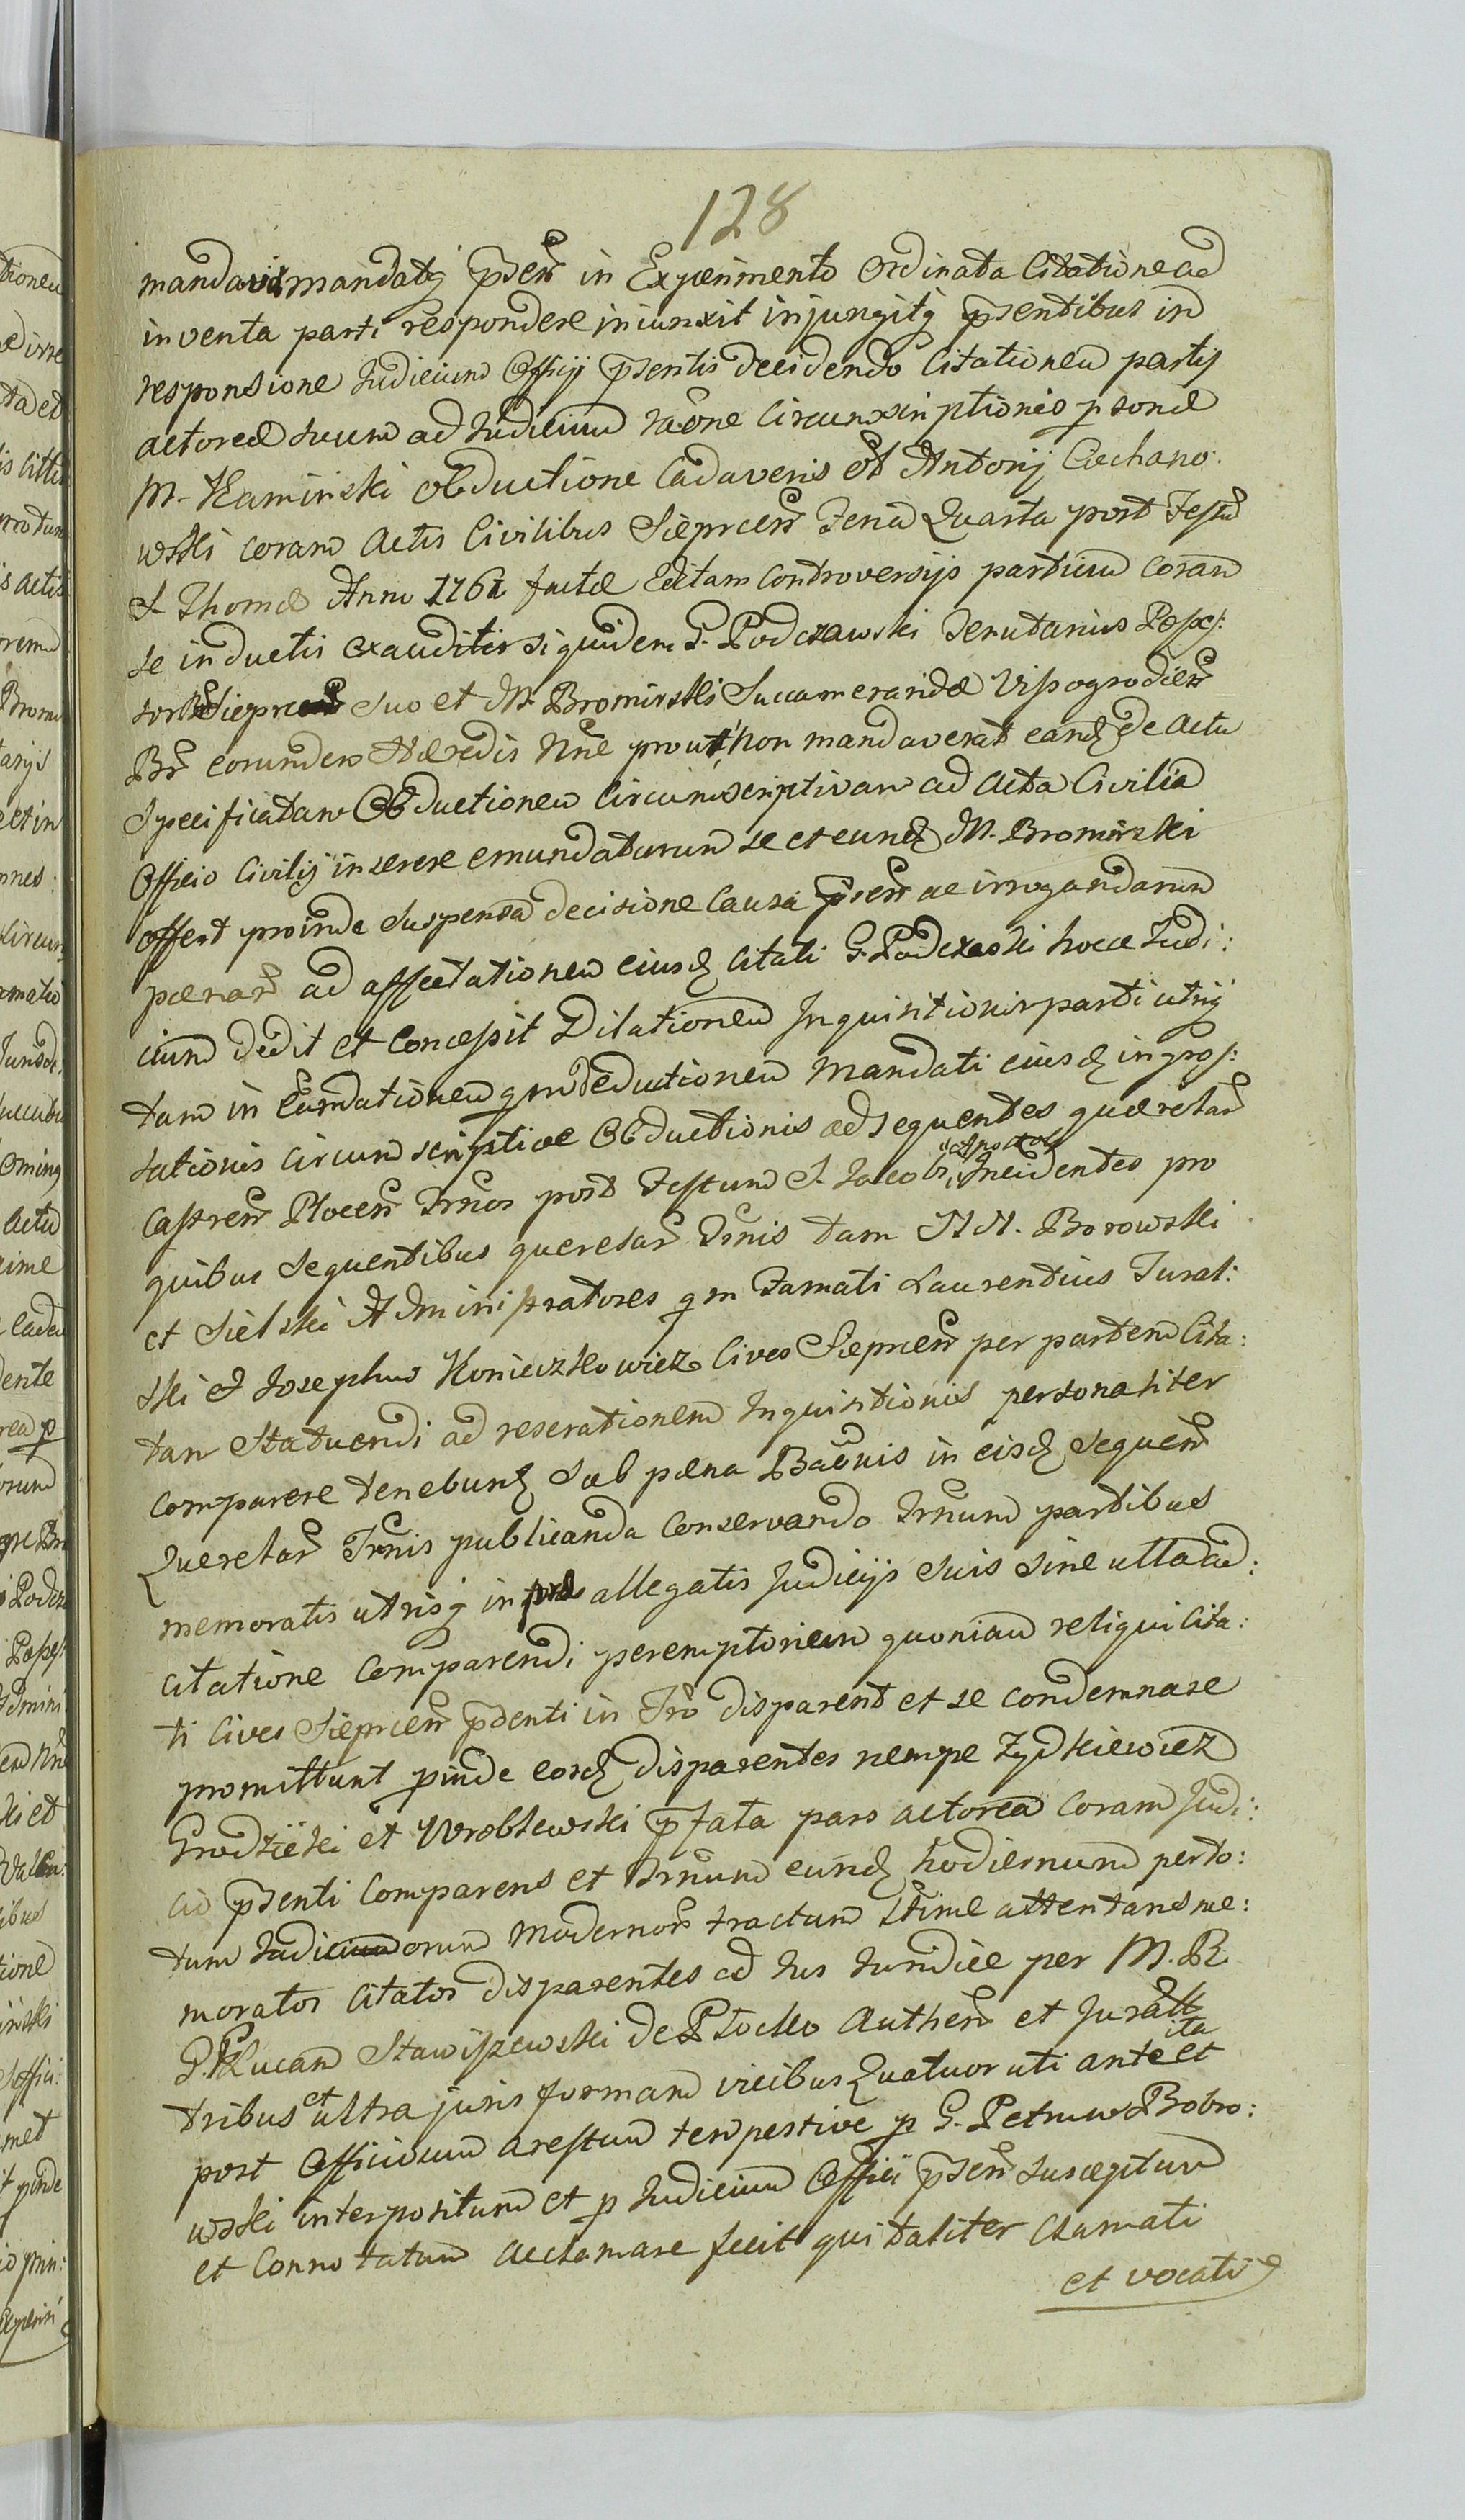 128
mandavit mandatq pſen in Experimento ordinata Citatione ad
inventa parti respondere iniunxit injungitq pſentibus in
responsione Judicium Officij pſentis decidendo Citationem partis
actoreæ suum ad Judicium raõne Circumscriptionis p sonæ
M. Kaminski obductione Cadaveris ol Antonij Cochano:
wski coram Actis Civilibus Sieprcen Feria Quarta post Festum
S. Thomæ Anno 1761 factæ Editam controversijs partium coram
se inductis exauditis siquidem G. Podczawski Tenutarius Posses:
sor Sieprcen suo et M. Bromirski Succamerarida Vissogrodien
Br eorundem Hæredis Nñe prout non mandaverat eandꝫ de actu
Specificatam Obductionem Circumscriptivam ad Acta Civilia
Officio Civilij inserere emundaturum se et eundꝫ M. Bromirski
offert proinde suspensa decisione Causæ pſen ac irrogandarum
pænar ad affectationem eiusdꝫ Citati G. Podczaski hocce Judi:
cium dedit et Concessit Dilationem Inquisitionis parti utriq
tam in Eundationem qm deductionem Mandati eiusdꝫ ingros:
sationis Circumscriptivæ Obductionis ad sequentes quærelar
Castren Plocen Trños post Festum S. Jacobi Apostoli Incidentes pro
quibus sequentibus querelar Trñis tam NN. Borowski
et Sielski Administratores qm Famati Laurentius Jurał:
ski & Josephus Konieczkowicz Cives Sieprcen per partem Cita:
tam Statuendi ad reserationem Inquisitionis personaliter
comparere tenebunꝫ sub pæna Baõnis in eisdꝫ sequen
Querelar Trñis publicanda Conservando Trñum partibus
memoratis utrisq in præallegatis Judicijs suis sine ulla ad:
citatione Comparendi peremptorium quoniam reliqui Cita:
ti Cives Sieprcen pdenti in Trõ disparent et se condemnare
promittunt pinde eosdꝫ disparentes nempe Zydkiewicz
Grodzicki et Wroblewski pfata pars actorea Coram Judi:
cio pſenti Comparens et Trñum eundꝫ hodiernum perto:
tum Judiciorum Modernor tractum Ltime attentans me:
moratos Citatos disparentes ad Jus Juridice per M. R.
P. Lucam Stawiszewski de Plocko Authen et Jurat
tribus et ultra juris formam vicibus Quatuor uti ante ita et
post Officiosum arestum tempestive p G. Petrum Bobro:
wski interpositum et p Judicium Officii pſen susceptum
et Connotatum acclamare fecit qui taliter Clamati
et vocati